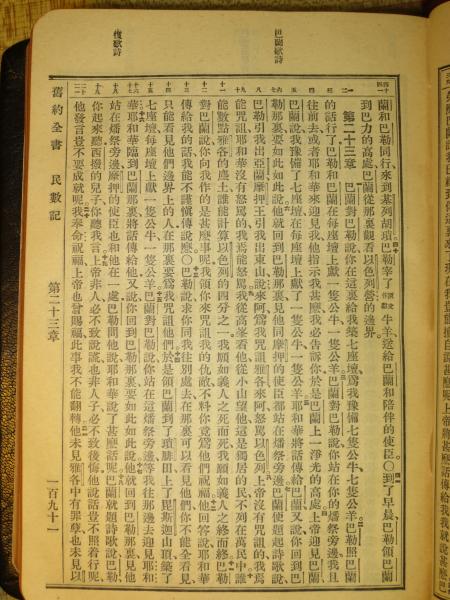 巴蘭歌詩
復歌詩
蘭和巴勒同行來到基列胡瑣巴勒宰了牛羊送給巴蘭和陪伴的使臣○到了早晨巴勒領巴蘭
到巴力的高處巴蘭從那裏觀看以色列營的邊界
第二十三章 巴蘭對巴勒說你在這裏給我築七座壇爲我豫備七隻公牛七隻公羊巴勒照巴蘭
的話行了巴勒和巴蘭在每座壇上獻一隻公牛一隻公羊巴蘭對巴勒說你站在你的燔祭旁邊我且
往前去或者耶和華來迎見我他指示我甚麼我必告訴你於是巴蘭上一淨光的高處上帝迎見巴蘭
巴蘭說我豫備了七座壇在每座壇上獻了一隻公牛一隻公羊耶和華將話傳給巴蘭又說你回到巴
勒那裏要如此如此說他就回到巴勒那裏見他同摩押的使臣都站在燔祭旁邊巴蘭便題起詩歌說
巴勒引我出亞蘭摩押王引我出東山說來阿爲我咒詛雅各來阿怒罵以色列上帝沒有咒詛的我焉
能咒詛耶和華沒有怒罵的我焉能怒罵我從高峯看他從小山望他這是獨居的民不列在萬民中誰
能數點雅各的塵土誰能計算以色列的四分之一我願如義人之死而死我願如義人之終而終巴勒
對巴蘭說你向我作的是甚麼事呢我領你來咒詛我的仇敵不料你竟爲他們祝福他回答說耶和華
傳給我的話我能不謹愼傳說麽○巴勒說求你同我往別處去在那裏可以看見他們你不能全看見
只能看見他們邊界上的人在那裏要爲我咒詛他們於是領巴蘭到了瑣腓田上了毘斯迦山頂築了
七座壇每座壇上獻一隻公牛一隻公羊巴蘭對巴勒說你站在這燔祭旁邊等我往那邊去迎見耶和
華耶和華臨到巴蘭那裏將話傳給他又說你回到巴勒那裏要如此如此說他就回到巴勒那裏見他
站在燔祭旁邊摩押的使臣也和他在一處巴勒問他說耶和華說了甚麼話呢巴蘭就題詩歌說巴勒
你起來聽西撥的兒子你聽我言上帝非人必不致說謊也非人子必不致後悔他說話豈不照着行呢
他發言豈不要成就呢我奉命祝福上帝也曾賜福此事我不能翻轉他未見雅各中有罪孽也未見以
舊約全書 民數記 第二十三章 一百九十一